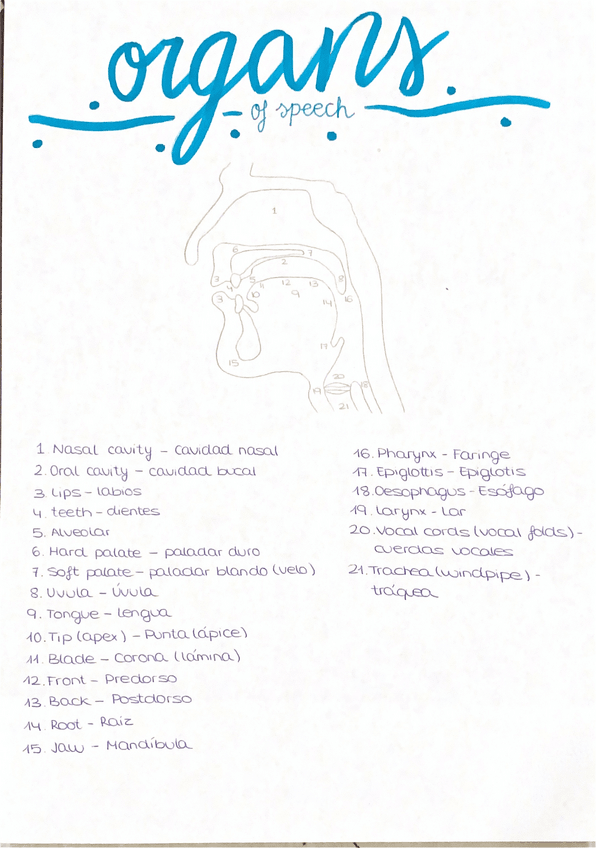 organs
of speech
1
6
7
2
3
4
5
11
12
13
8
3
10
9
14
16
15
17
20
19
18
21
1 Nasal cavity - Cavidad nasal
2. Oral cavity - cavidad bucal
3 Lips - labios
4. teeth - dientes
5. Alveolar
6. Hard palate - paladar duro
7. Soft palate - paladar blando (velo)
8. Uvula - Úvula
9. Tongue - Lengua
10. Tip (apex) - Punta (ápice)
11. Blade - Corona (lámina)
12. Front - Predorso
13. Back - Postdorso
14. Root - Raiz
15. Jaw - Mandíbula
16. Pharynx - Faringe
17. Epiglottis - Epiglotis
18. Oesophagus - Esófago
19. Larynx - Lar
20. Vocal cords (vocal folds) -
cuerdas vocales
21. Trachea (windpipe) -
tráquea